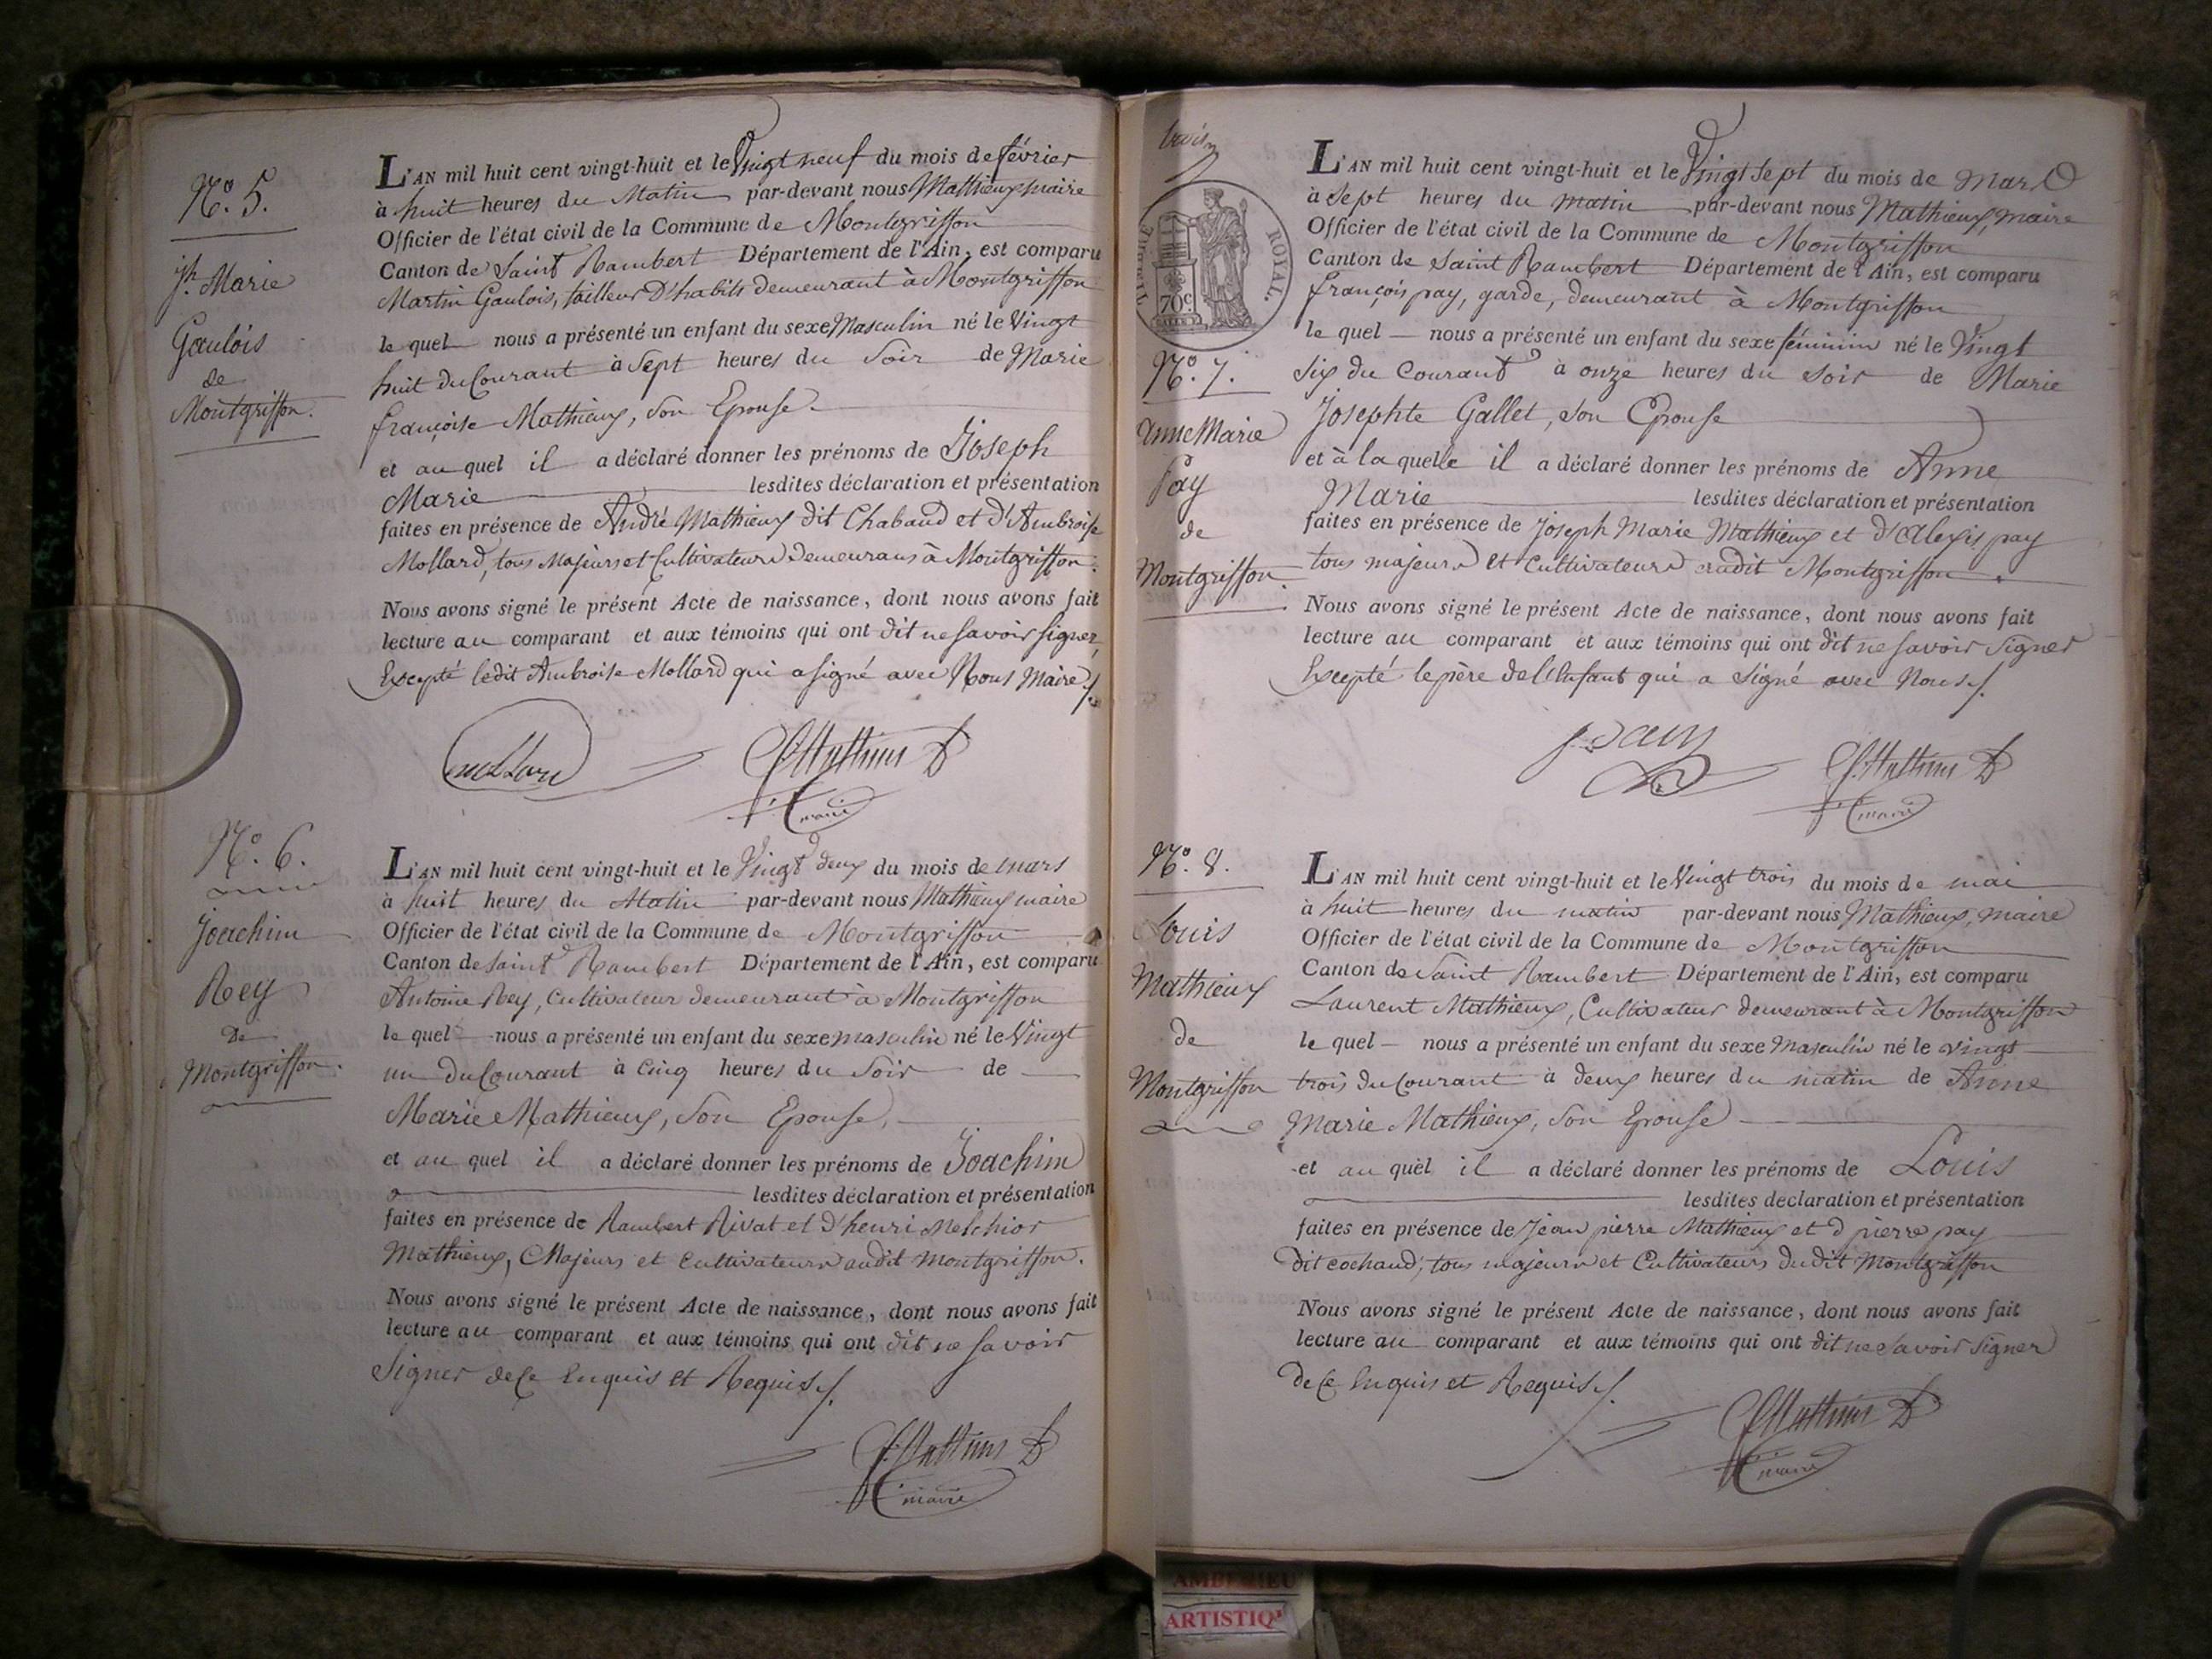 N.° 5.
jh. Marie
Gaulois
de
Montgriffon.
L'AN mil huit cent vingt-huit et le Vingt neuf du mois de février
à huit heures du Matin par-devant nous Mathieux maire
Officier de l'état civil de la Commune de Montgriffon
Canton de Saint Rambert Département de l'Ain, est comparu
Martin Gaulois, tailleur D'habits demeurant à Montgriffon
le quel nous a présenté un enfant du sexe Masculin né le Vingt
huit du Courant à Sept heures du Soir de Marie
françoise Mathieux, Son Epouse.
et au quel il a déclaré donner les prénoms de Joseph
Marie lesdites déclaration et présentation
faites en présence de André Mathieux dit Chabaud et d'Ambroise
Mollard, tous Majeurs et Cultivateurs demeurans à Montgriffon.
Nous avons signé le présent Acte de naissance, dont nous avons fait
lecture au comparant et aux témoins qui ont dit ne Savoir Signer,
Excepté ledit Ambroise Mollard qui a signé avec Nous Maire
mollard
Mathieux
maire
N.° 6.
Joachim
Rey
De
Montgriffon.
L'AN mil huit cent vingt-huit et le Vingt deux du mois de mars
à huit heures du Matin par-devant nous Mathieux maire
Officier de l'état civil de la Commune de Montgriffon
Canton de Saint Rambert Département de l'Ain, est comparu
Antoine Rey, Cultivateur demeurant à Montgriffon
le quel nous a présenté un enfant du sexe masculin né le Vingt
un du Courant à Cinq heures du Soir de
Marie Mathieux, Son Epouse,
et au quel il a déclaré donner les prénoms de Joachim
lesdites déclaration et présentation
faites en présence de Rambert Rivat et d'henri Melchior
Mathieux, Majeurs et Cultivateurs audit Montgriffon.
Nous avons signé le présent Acte de naissance, dont nous avons fait
lecture au comparant et aux témoins qui ont dit ne Savoir
Signer de Ce Enquis et Requis
Mathieux
maire
trois
TIMBRE ROYAL.
70c
N.° 7.
Anne Marie
Pay
de
Montgriffon.
L'AN mil huit cent vingt-huit et le Vingt Sept du mois de Mars
à Sept heures du matin par-devant nous Mathieux, maire
Officier de l'état civil de la Commune de Montgriffon
Canton de Saint Rambert Département de l'Ain, est comparu
françois pay, garde, demeurant à Montgriffon
le quel nous a présenté un enfant du sexe féminin né le Vingt
Six du Courant à onze heures du Soir de Marie
Josephte Gallet, Son Epouse
et à la quelle il a déclaré donner les prénoms de Anne
Marie lesdites déclaration et présentation
faites en présence de Joseph Marie Mathieux et d'Alexis pay
tous majeurs et Cultivateurs audit Montgriffon.
Nous avons signé le présent Acte de naissance, dont nous avons fait
lecture au comparant et aux témoins qui ont dit ne Savoir Signer
Excepté le père de l'Enfant qui a Signé avec Nous
Mathieux
maire
N.° 8.
Louis
Mathieux
de
Montgriffon
L'AN mil huit cent vingt-huit et le Vingt trois du mois de mai
à huit heures du matin par-devant nous Mathieux, maire
Officier de l'état civil de la Commune de Montgriffon
Canton de Saint Rambert Département de l'Ain, est comparu
Laurent Mathieux, Cultivateur demeurant à Montgriffon
le quel nous a présenté un enfant du sexe Masculin né le vingt
trois du Courant à deux heures du matin de Anne
Marie Mathieux, Son Epouse
et au quel il a déclaré donner les prénoms de Louis
lesdites declaration et présentation
faites en présence de Jean pierre Mathieux et d pierre pay
dit cochaud, tous majeurs et Cultivateurs dudit Montgriffon
Nous avons signé le présent Acte de naissance, dont nous avons fait
lecture au comparant et aux témoins qui ont dit ne Savoir Signer
de Ce Enquis et Requis
Mathieux
maire
ARTISTIQ